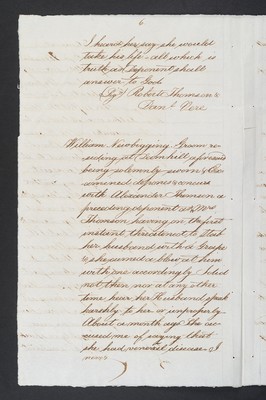 6
I heard her say she would
take his life – all which is
truth as Deponent shall
answer to God
(Sgd) Robert Thomson
Danl Vere
William Newbigging Groom re-
siding at Townhill aforesaid
being solemnly sworn & Exa-
mined depones & concurs
with Alexander Thomson a
preceding deponent as to Mrs
Thomson having on the first
instant threatened to stab
her husband with a Graipe
& she aimed a blow at him
with one accordingly I did
not then nor at any other
time hear her Husband speak
harshly to her or improperly
About a month ago She ac-
cused me of saying that
she had venereal disease – I
never